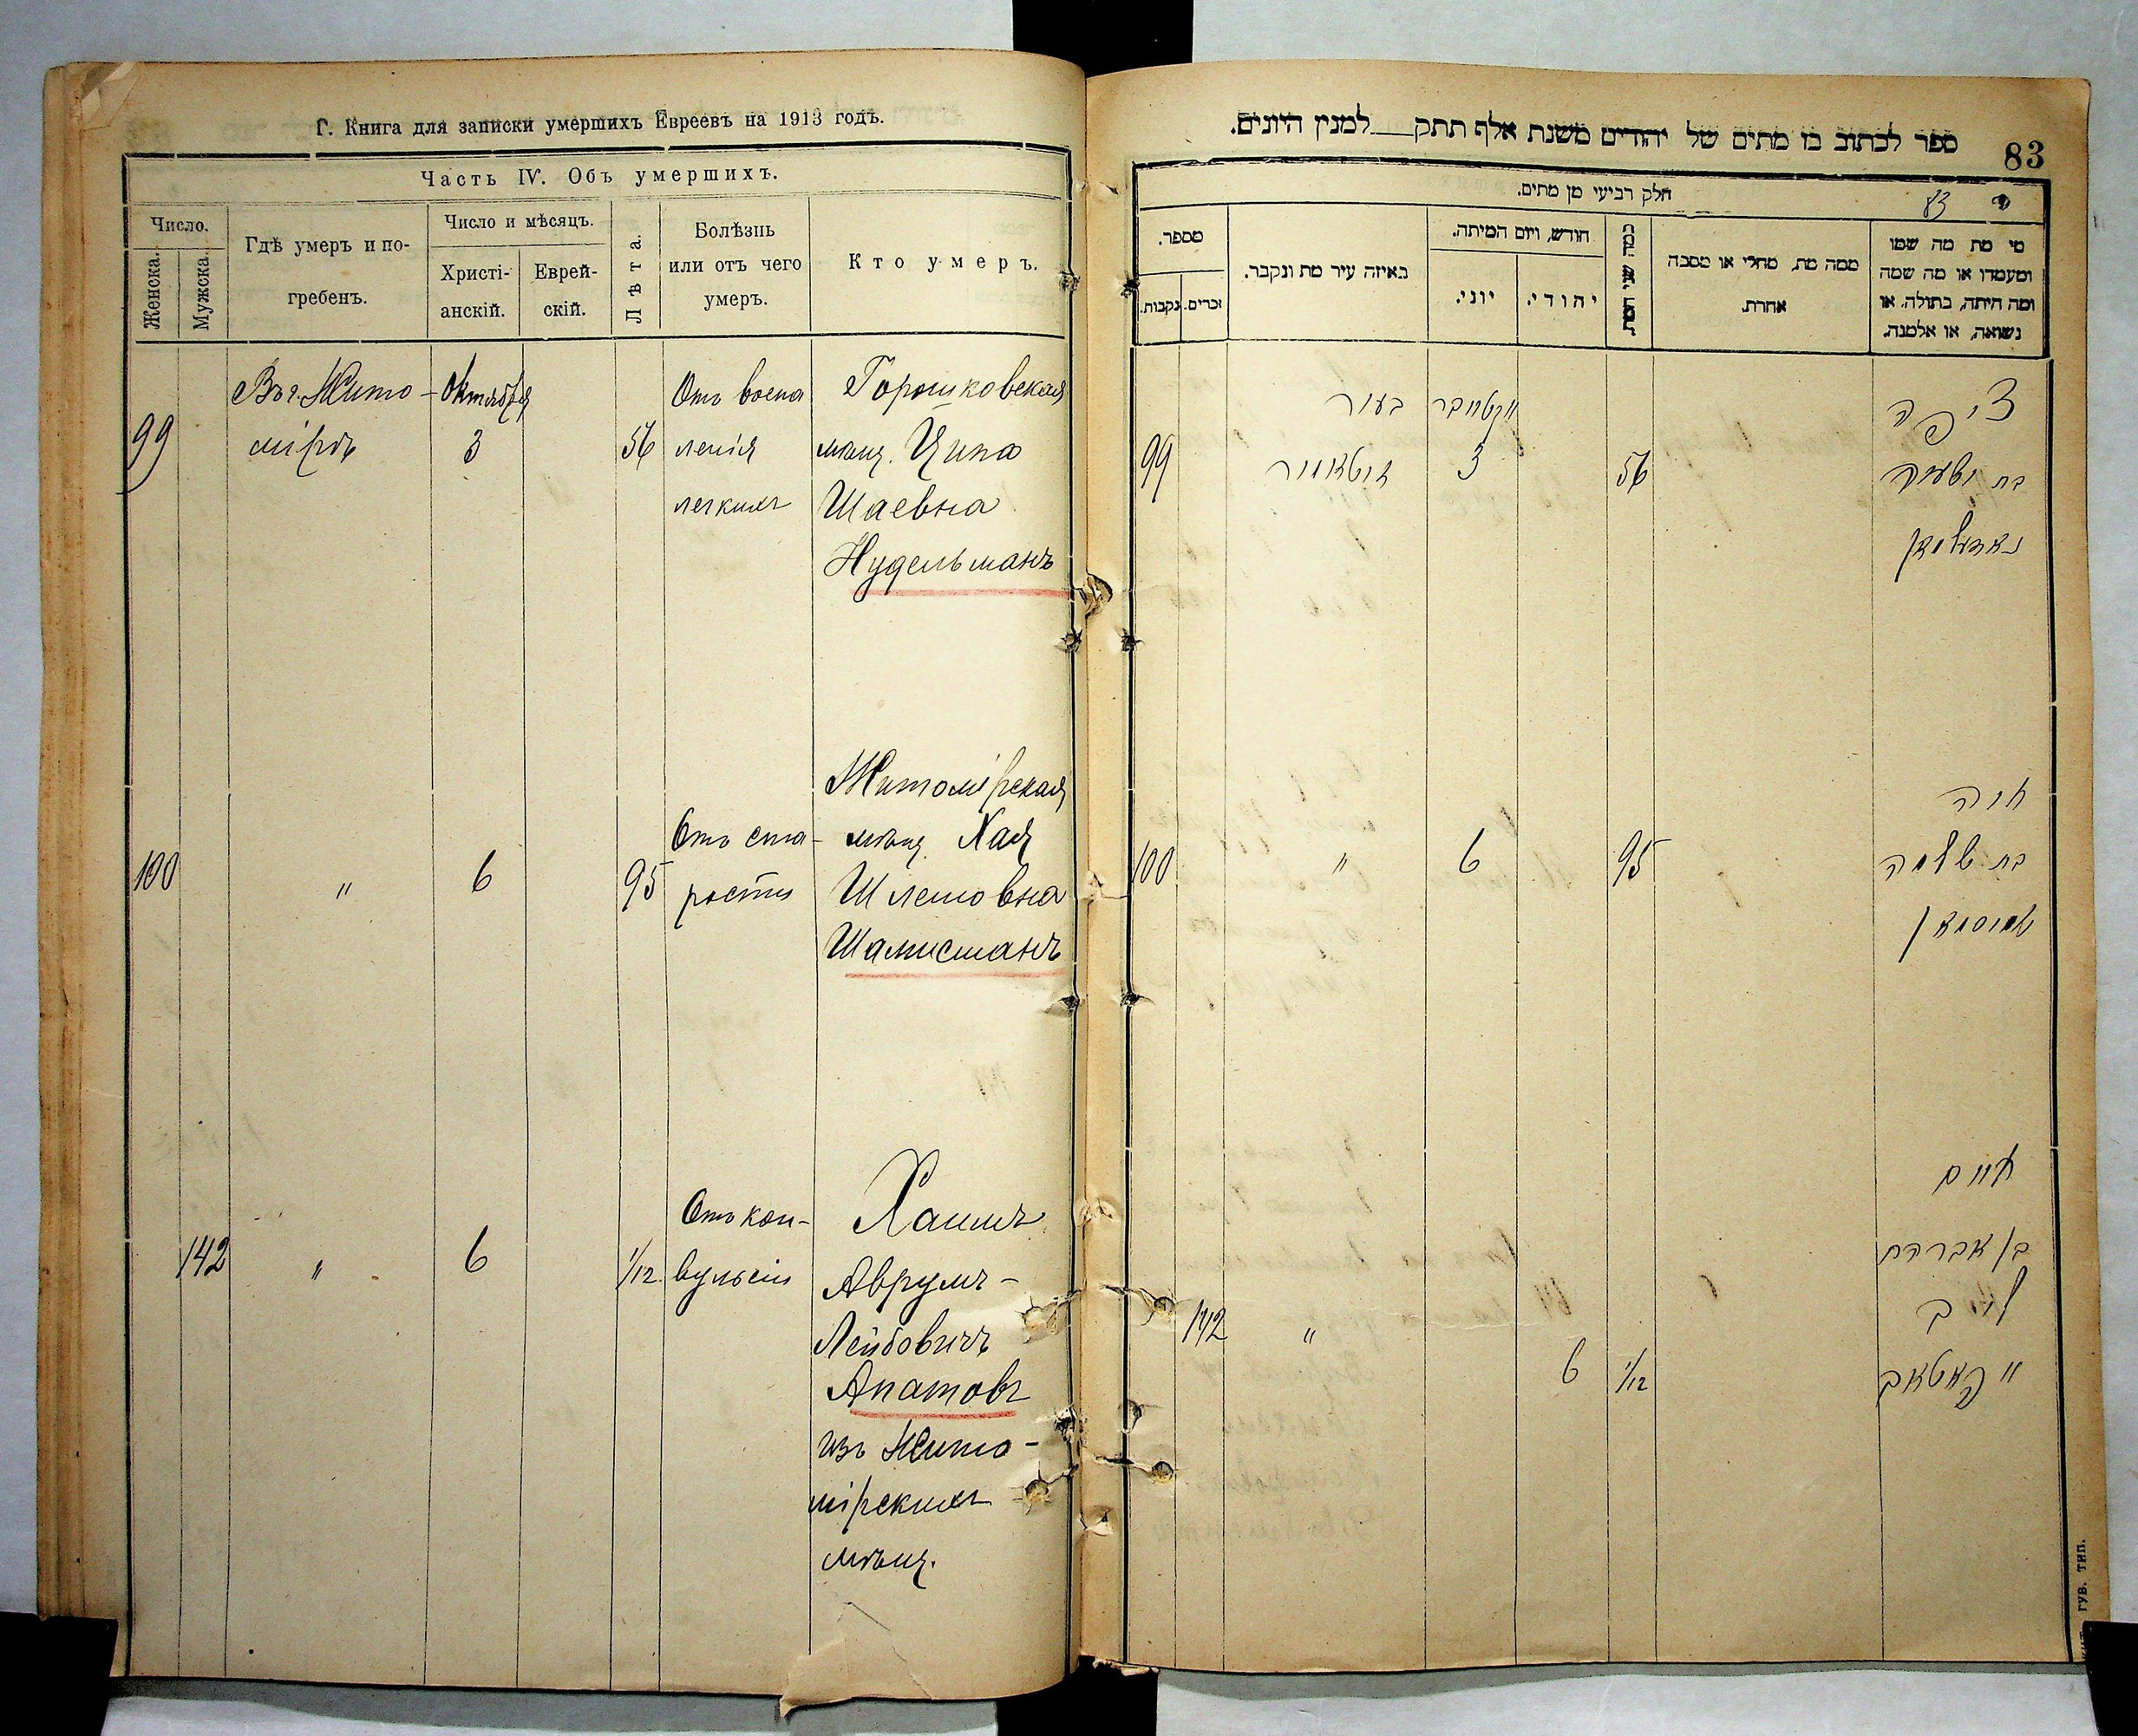 Г. Книга для записки умершихъ Евреевъ на 1913 годъ.
Часть IV. Объ умершихъ.
Число.
Женска.
Мужска.
Гдѣ умеръ и по-
гребенъ.
Число и мѣсяцъ.
Христі-
анскій.
Еврей-
скій.
Лѣта.
Болѣзнь
или отъ чего
умеръ.
Кто умеръ.
99
Въ г. Жито-
мірѣ
Октября
3
56
Отъ воспа
ленія
легкихъ
Горошковская
мѣщ. Ципа
Шаевна
Нудельманъ
100
"
6
95
Отъ ста-
рости
Житомірская
мѣщ. Хая
Шлемовна
Шамисманъ
142
"
6
1/12
Отъ кон-
вульсіи
Хаимъ
Аврумъ-
Лейбовичъ
Апатовъ
изъ Жито-
мірскихъ
мѣщ.
ספר לכתוב בו מתים של יהודים משנת אלף תתק למנין היונים.
83
חלק רביעי מן מתים.
83
מספר.
נקבות.
זכרים.
באיזה עיר מת ונקבר.
חודש, ויום המיתה.
יוני.
יהודי.
כמה שני המת.
ממה מת, מחלי או מסבה
אחרת.
מי מת מה שמו
ומעמדו או מה שמה
ומה היתה, בתולה, או
נשואה, או אלמנה.
99
בעיר
זיטאמיר
אקטאבר
3
56
ציפה
בת ישעיה
נודלמאן
100
"
6
95
חיה
בת שלמה
שמיסמאן
142
"
6
1/12
חיים
בן אברהם
ליב
אפאטאב
ГУБ. ТИП.